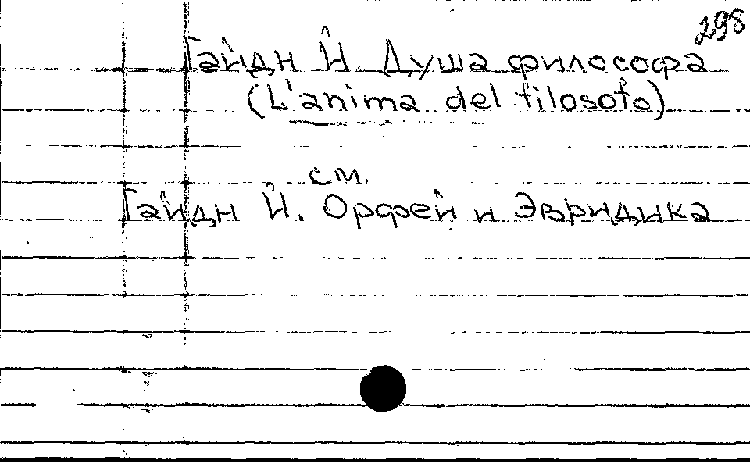 298
Гайдн Й. Душа философа
(L'anima del filosofo)
см.
Гайдн Й. Орфей и Эвридика